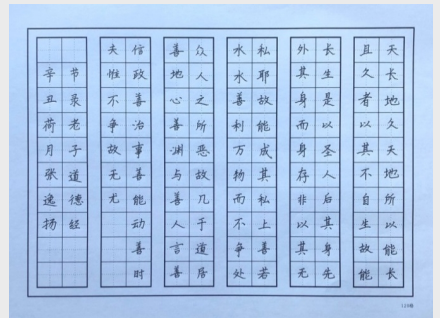 天长地久天地所以能长
且久者以其不自生故能
长生是以圣人后其身先
外其身而身存非以其无
私耶故能成其私上善若
水水善利万物而不争处
众人之所恶故几于道居
善地心善渊与善人言善
信政善治事善能动善时
夫惟不争故无尤
节录老子道德经
辛丑荷月张逸扬